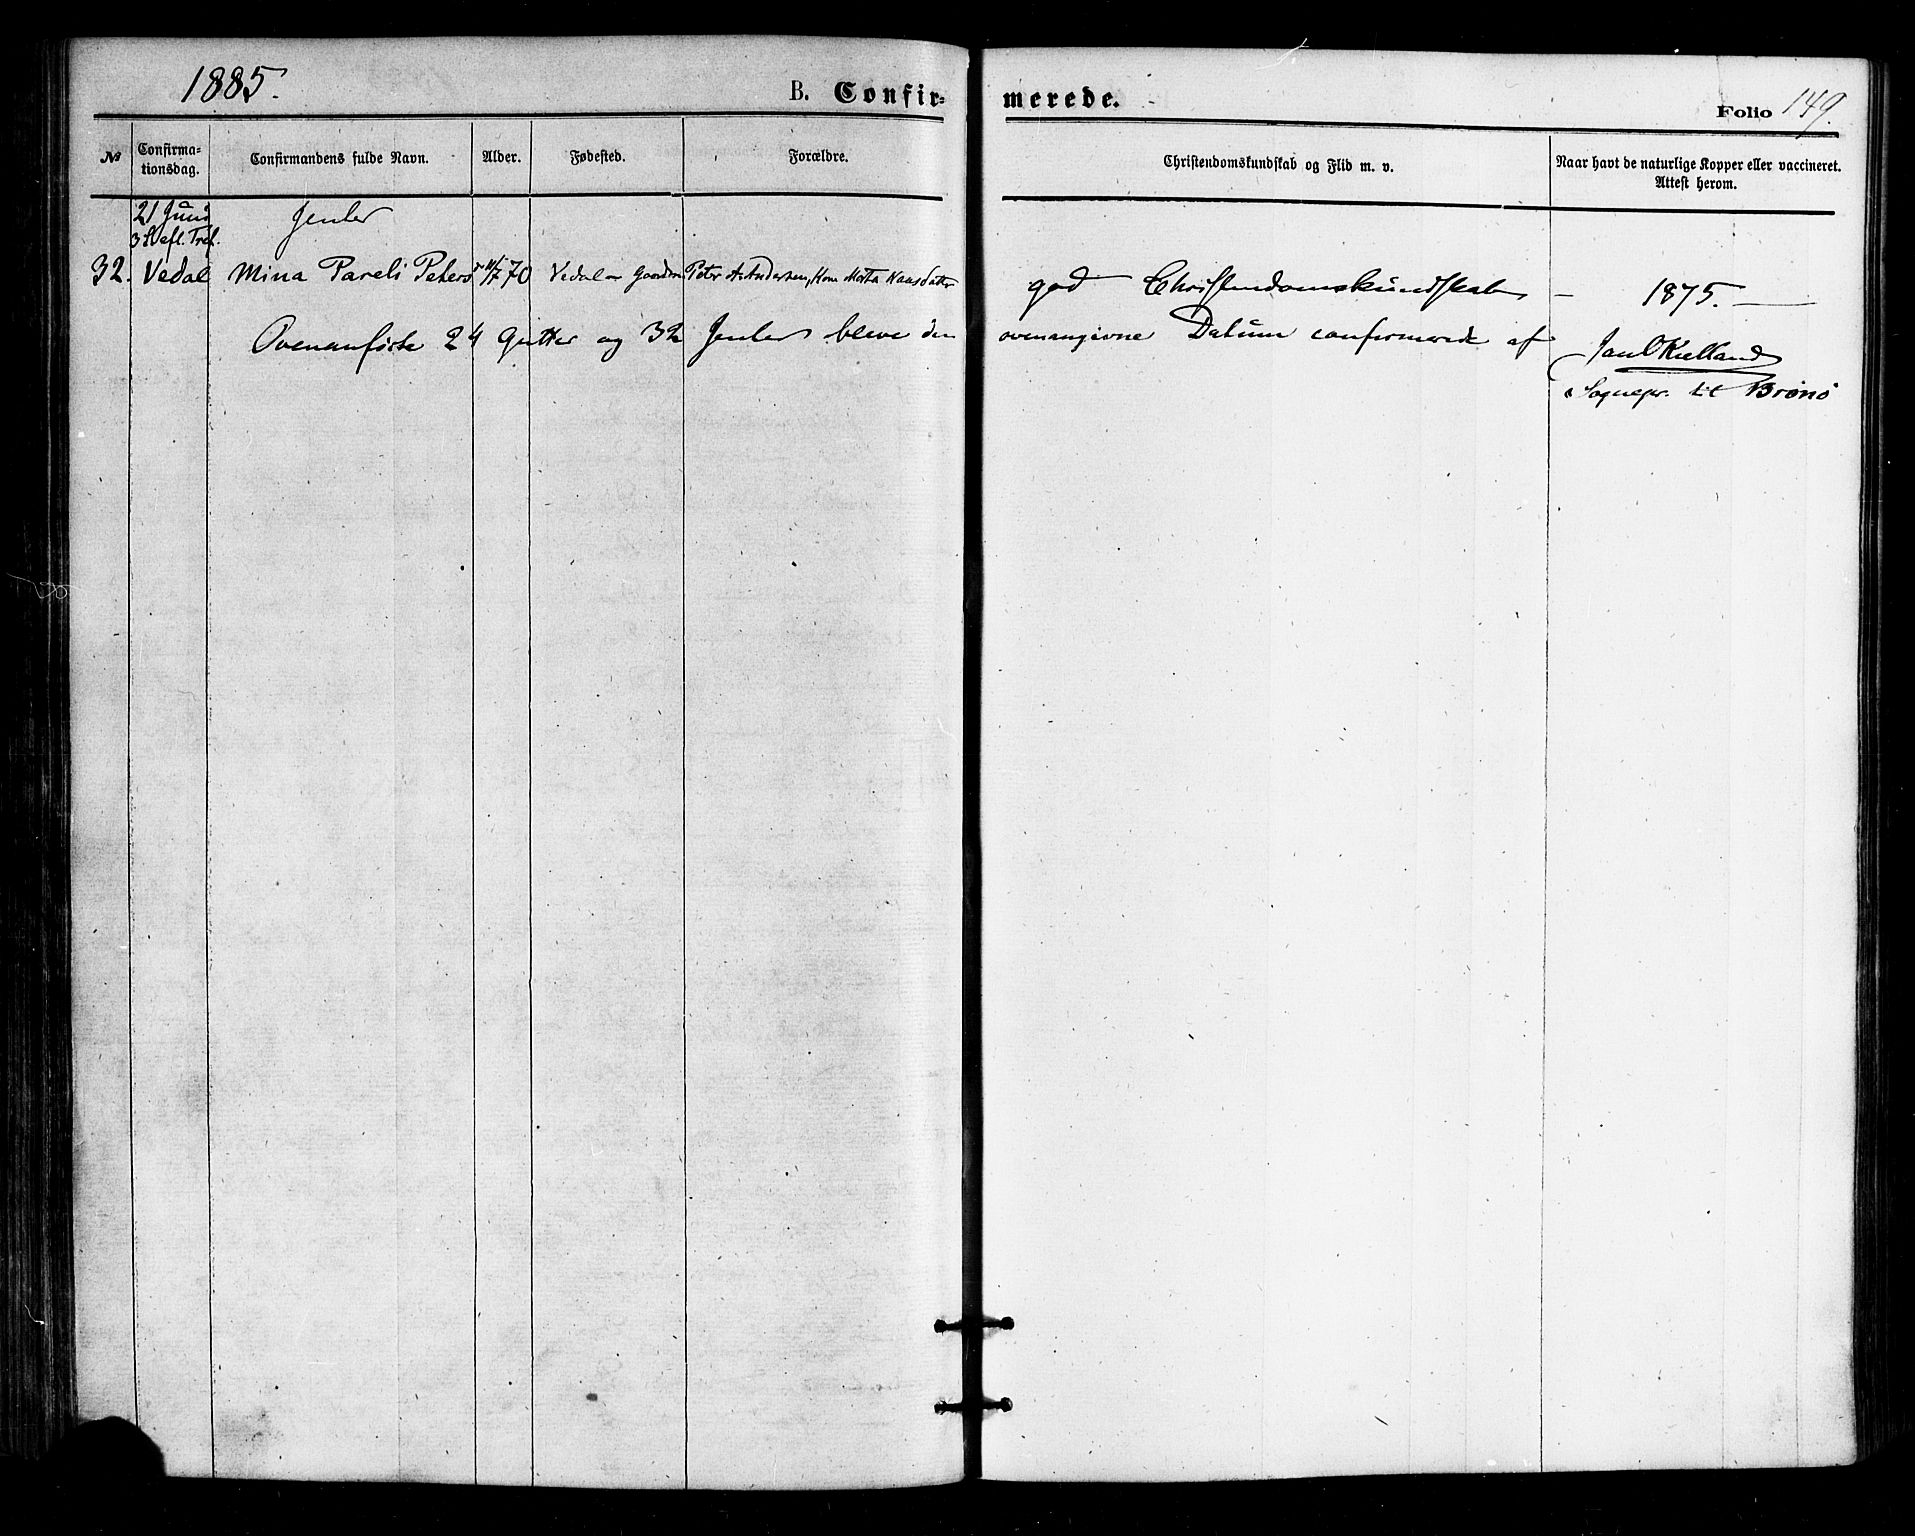 1885.
B. Confir-
merede.
Folio 149.
№
Confirma-
tionsdag.
Confirmandens fulde Navn.
Alder.
Fødested.
Forældre.
Christendomskundskab og Flid m. v.
Naar havt de naturlige Kopper eller vaccineret.
Attest herom.
21 Juni
3 S. eft. Tref.
Jenter
32. Vedal Mina Pareli Peters 11/7 70 Vedal Gaardm Peter A. Andersen, Kone Marta Hansdatter god Christendomskundskab – 1875. —
Ovenanførte 24 Gutter og 32 Jenter bleve den ovenangivne Datum confirmerede af
Kielland
Sognepr. til Brønø